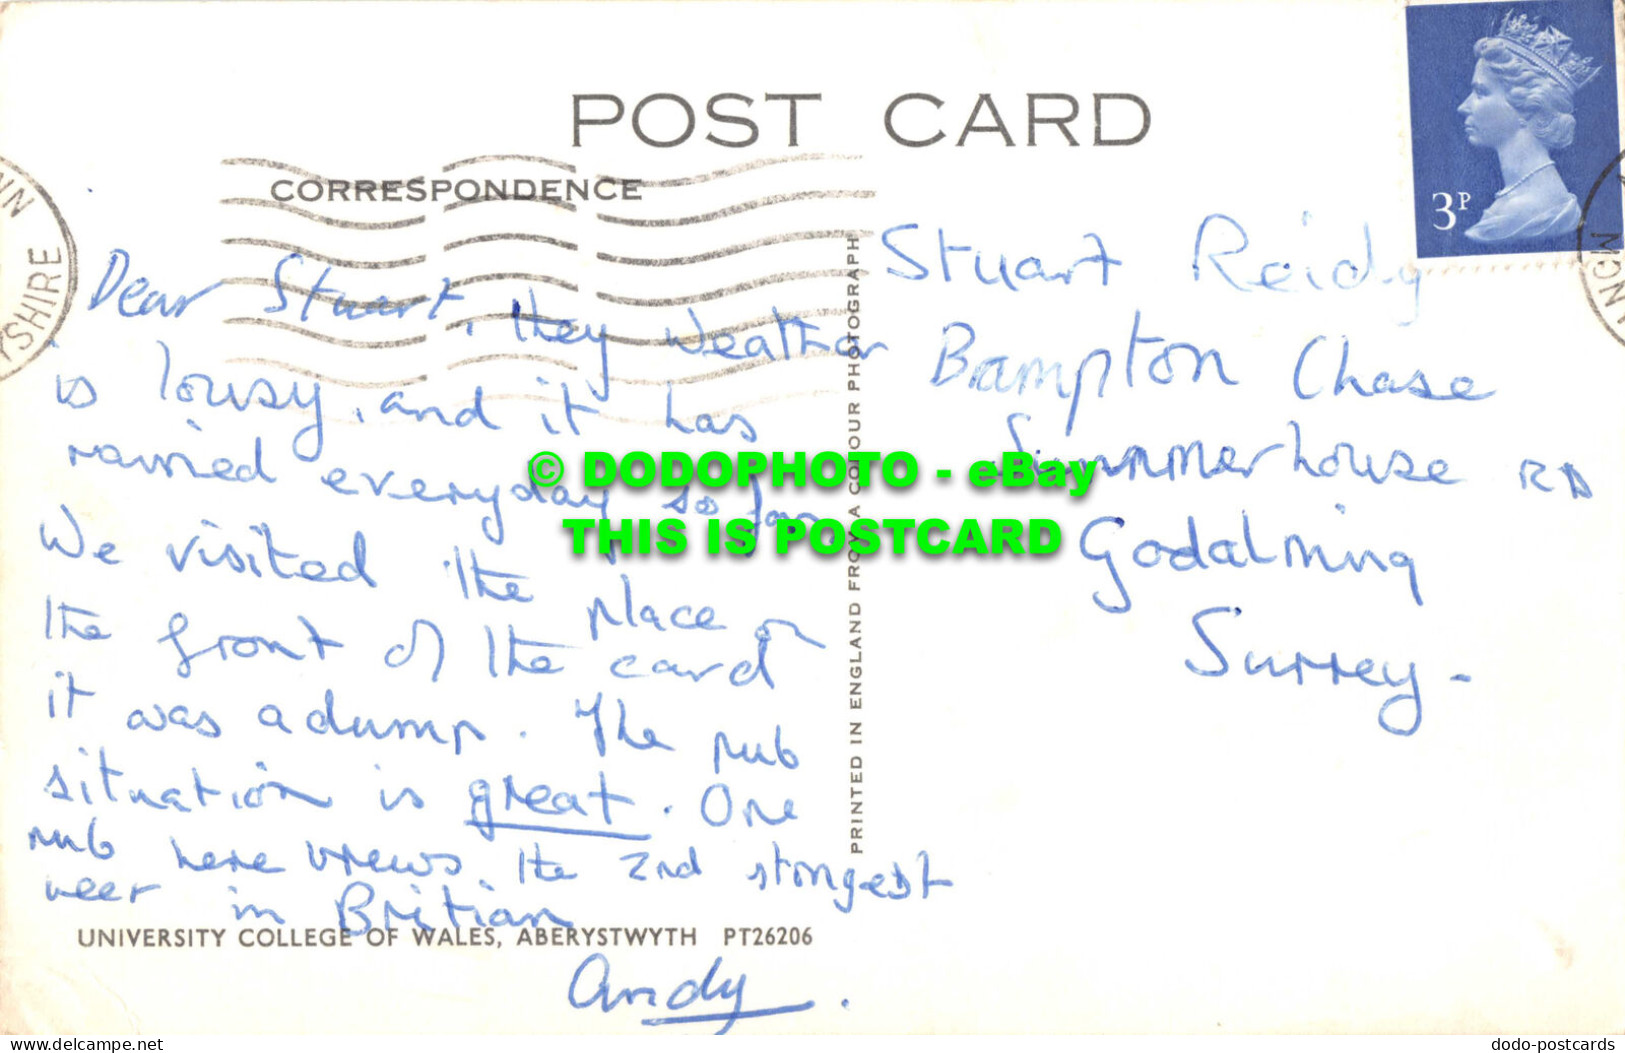 POST CARD
CORRESPONDENCE
3P
Dear Stuart, they weather
is lousy, and it has
rainied everyday so far
We visited the place on
the front of the card
it was a dump. The pub
situation is great. One
pub here views the 2nd stongest
veer in Britian
Andy.
Stuart Reidy
Bampton Chase
Summerhouse RD
Godalming
Surrey-
PRINTED IN ENGLAND FROM A COLOUR PHOTOGRAPH
UNIVERSITY COLLEGE OF WALES, ABERYSTWYTH PT26206
© DODOPHOTO - eBay
THIS IS POSTCARD
delcampe.net
dodo-postcards